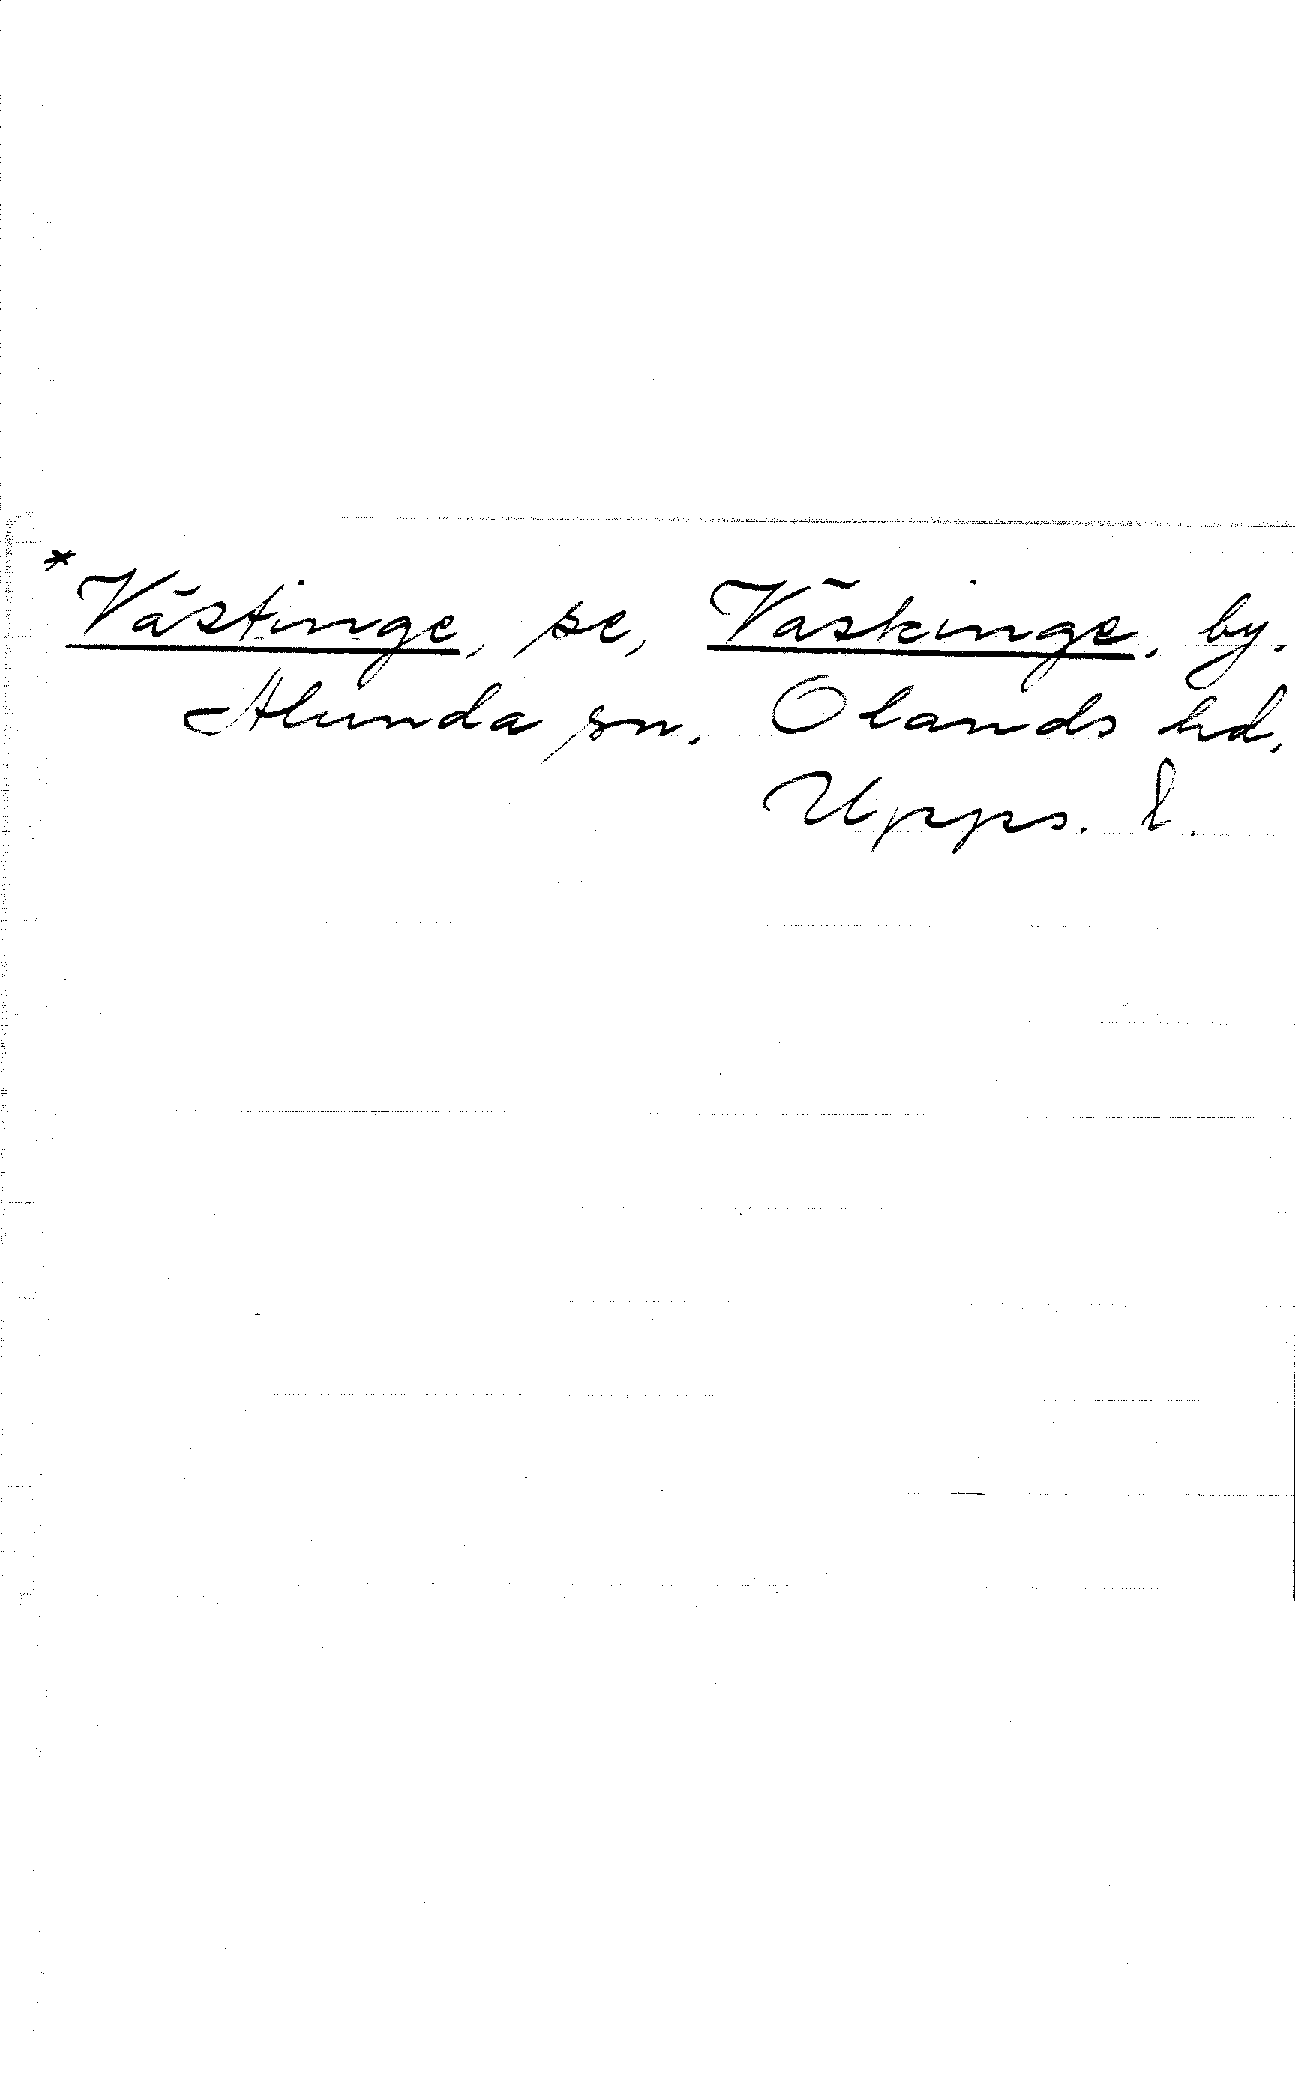 *Västinge, se, Väskinge, by.
Alunda sn. Olands hd,
Upps. l.